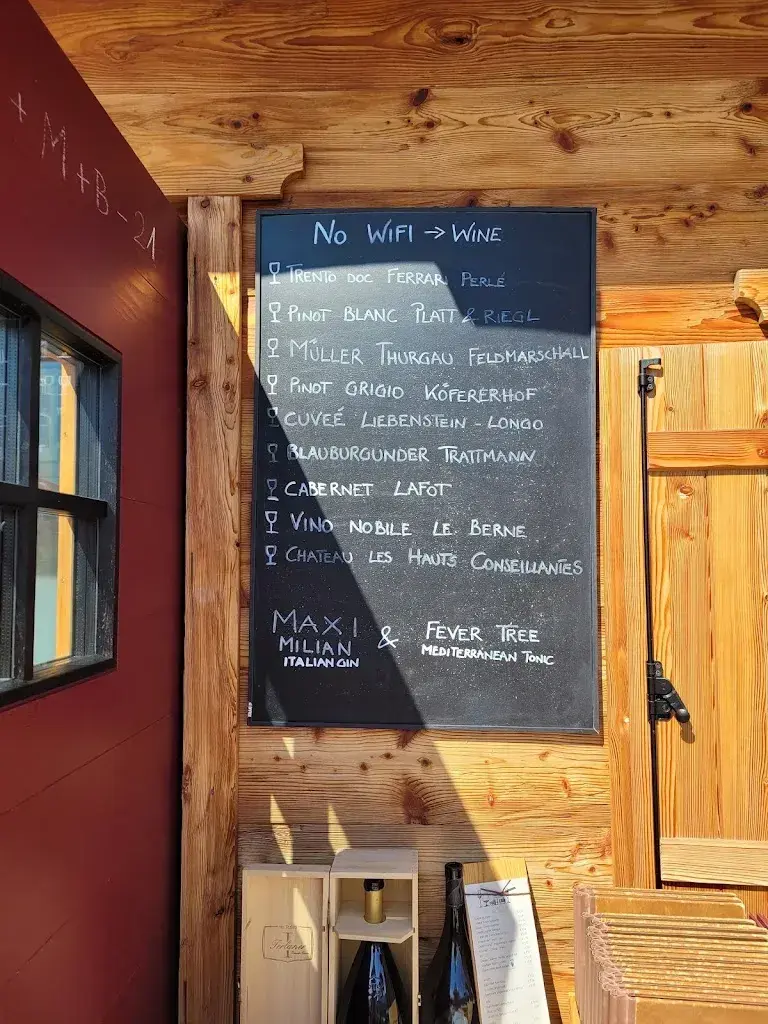 + M + B - 21
No WiFi → WINE
TRENTO DOC FERRARI PERLÉ
PINOT BLANC PLATT & RIEGL
MÜLLER THURGAU FELDMARSCHALL
PINOT GRIGIO KÖFERERHOF
CUVEÉ LIEBENSTEIN - LONGO
BLAUBURGUNDER TRATTMANN
CABERNET LAFOT
VINO NOBILE LE BERNE
CHATEAU LES HAUTS CONSEILLANTES
MAXI
MILIAN
ITALIAN GIN
&
FEVER TREE
MEDITERRANEAN TONIC
Terlaner